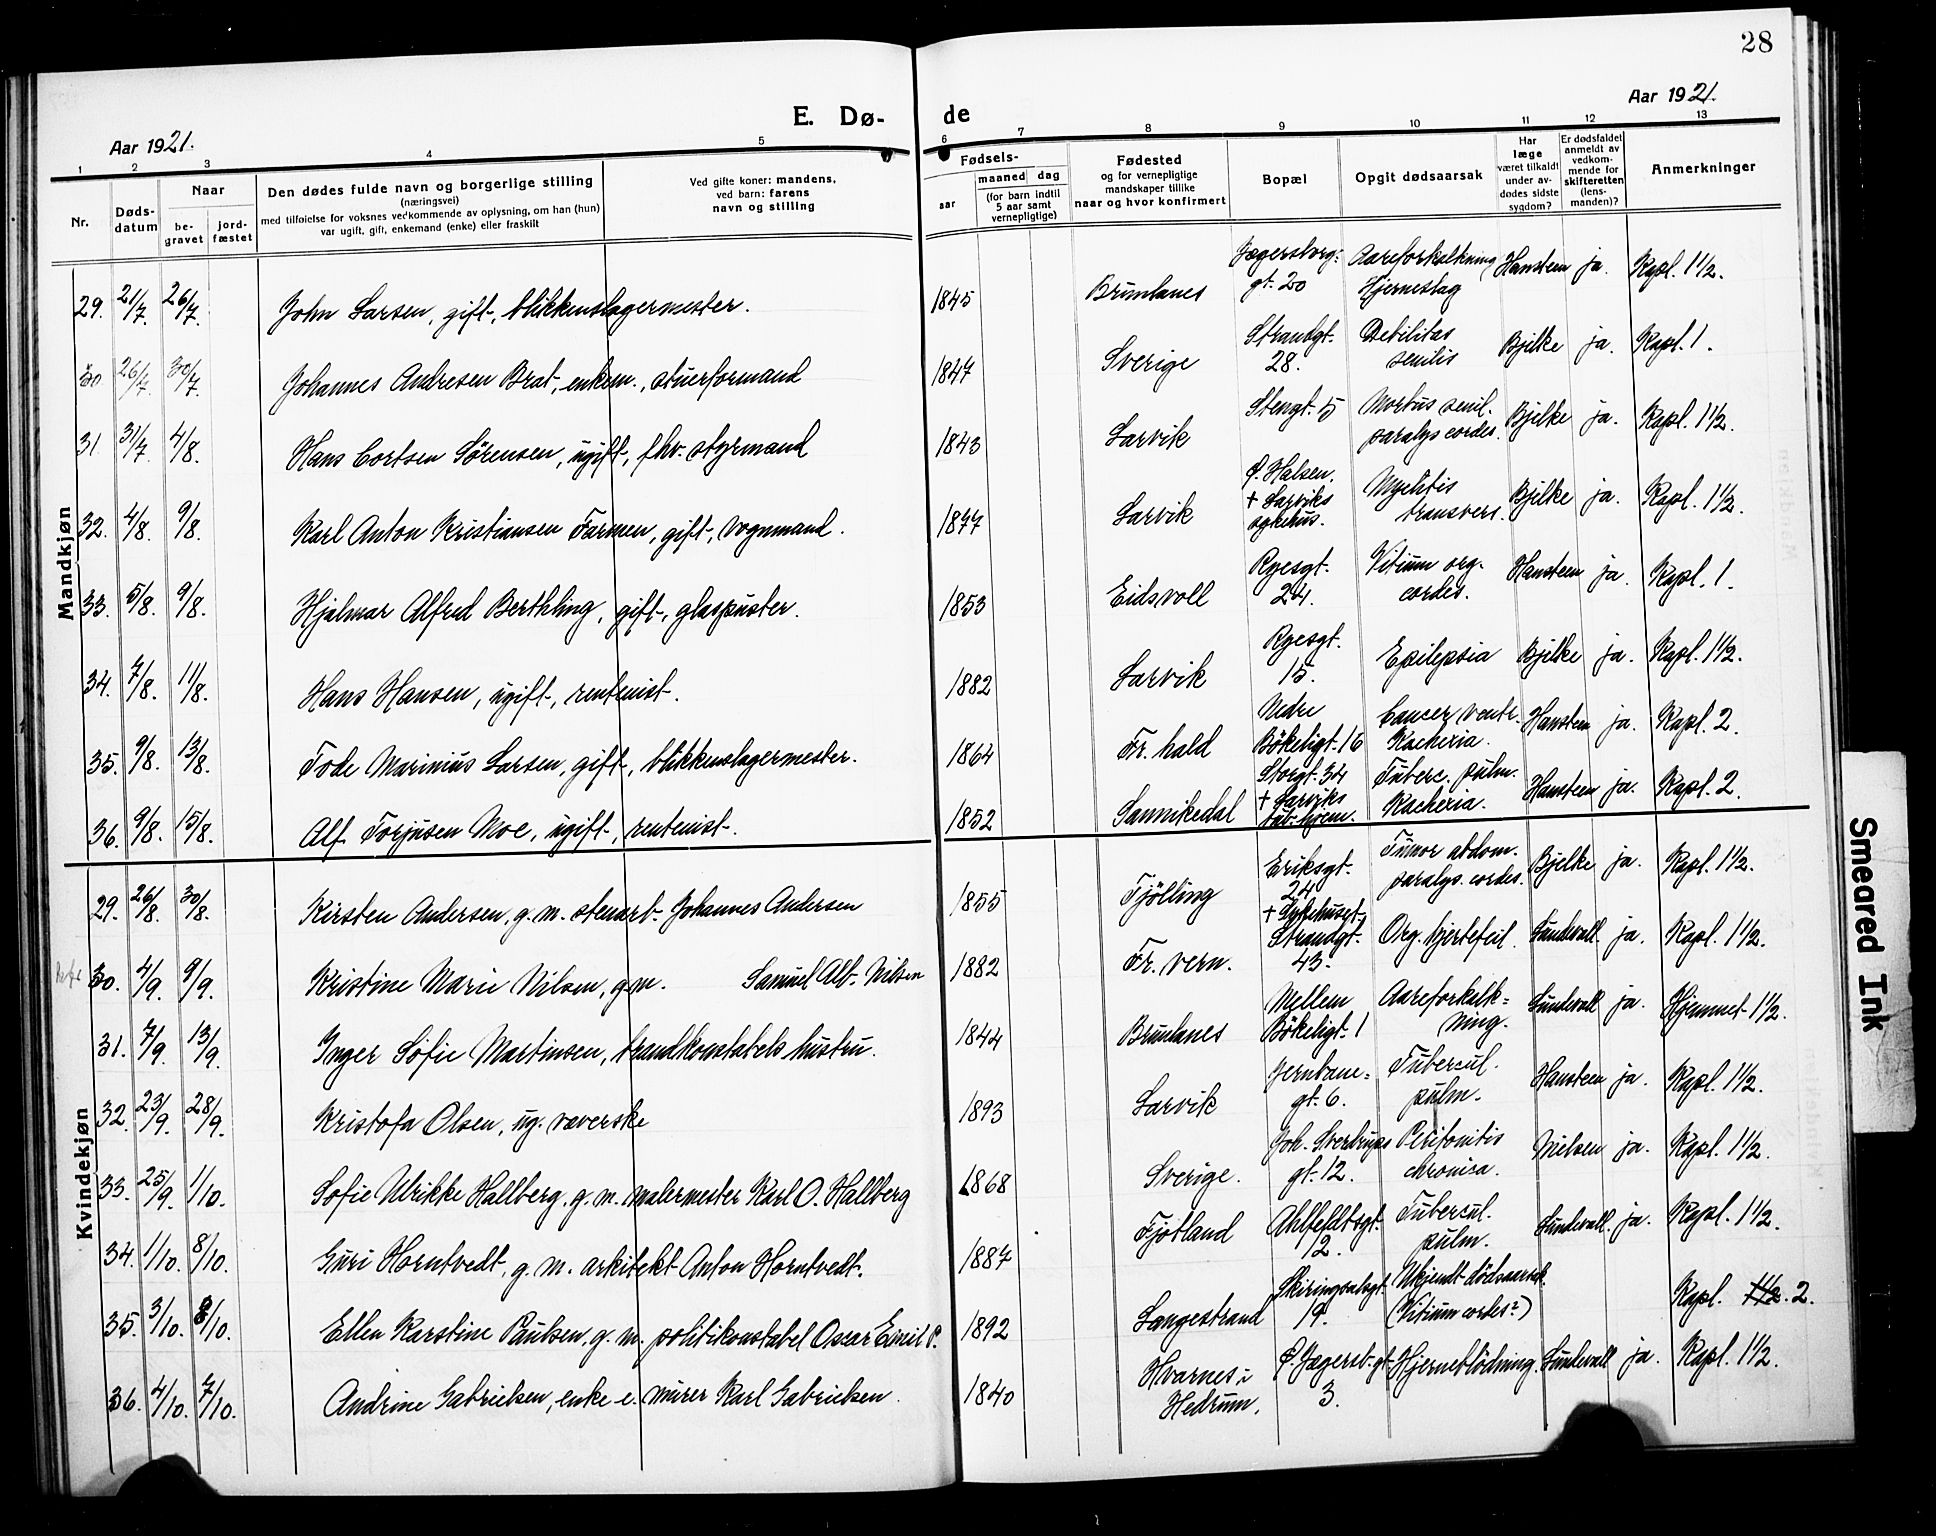 28
Aar 1921.
E. Dø-
de
Aar 1921.
1 2 3 4 5 6 7 8 9 10 11 12 13
Nr.
Døds-
datum
Naar
be-
gravet
jord-
fæstet
Den dødes fulde navn og borgerlige stilling
(næringsvei)
med tilføielse for voksnes vedkommende av oplysning, om han (hun)
var ugift, gift, enkemand (enke) eller fraskilt
Ved gifte koner: mandens,
ved barn: farens
navn og stilling
Fødsels-
aar
maaned dag
(for barn indtil
5 aar samt
vernepligtige)
Fødested
og for vernepligtige
mandskaper tillike
naar og hvor konfirmert
Bopæl
Opgit dødsaarsak
Har
læge
været tilkaldt
under av-
dødes sidste
sygdom?
Er dødsfaldet
anmeldt av
vedkom-
mende for
skifteretten
(lens-
manden)?
Anmerkninger
Mandkjøn
29. 21/7. 26/7. John Larsen, gift, blikkenslagermester. 1845 Brunlanes Jægersborg:
gt. 20 Aareforkalkning
Hjerneslag Hansteen ja. Kapl. 1 1/2.
30 26/7. 30/7. Johannes Andresen Brat, enkem., stuerformand 1847 Sverige Strandgt.
28. Debilitas
senilis Bjelke ja. Kapl. 1.
31. 31/7. 4/8. Hans Cortsen Sörensen, ugift, fhv. styrmand 1843 Larvik Stengt. 5 Morbus senil.
paralys cordes. Bjelke ja. Kapl. 1 1/2.
32. 4/8. 9/8. Karl Anton Kristiansen Farmen, gift, vognmand. 1877 Larvik Ø. Halsen.
+ Larviks
sykehus. Myelitis
transvers. Bjelke ja. Kapl. 1 1/2.
33. 5/8. 9/8. Hjalmar Alfred Berthling, gift, glaspuster. 1853 Eidsvoll Ryesgt.
24. Vitium org.
cordes. Hansteen ja. Kapl. 1.
34. 7/8. 11/8. Hans Hansen, ugift, rentenist. 1882 Larvik Ryesgt.
15. Epilepsia Bjelke ja. Kapl. 1 1/2.
35. 9/8. 13/8. Tode Marinius Larsen, gift, blikkenslagermester. 1864 Fr. hald Nedre
Bökeligt. 16 Cancer ventr.
Kachexia. Hansteen ja. Kapl. 2.
36. 9/8. 15/8. Alf Torjusen Moe, ugift, rentenist. 1852 Sannikedal Storgt. 34
+ Larviks
tub. hjem. Tuberc. pulm.
Kachexia. Hansteen ja. Kapl. 2.
Kvindekjøn
29. 26/8. 30/8. Kirsten Andersen, g. m. stenarb. Johannes Andersen 1855 Tjölling Eriksgt.
24
+ Sykehuset Tumor abdom.
paralys. cordes. Bjelke ja. Kapl. 1 1/2.
30. 4/9. 9/9. Kristine Marie Nilsen, g.m. Samuel Alb. Nilsen 1882 Fr. vern. Strandgt.
43. Org. hjertefeil. Sundevall ja. Kapl. 1 1/2.
31. 7/9. 13/9. Inger Sofie Martinsen, brandkonstabels hustru. 1844 Brunlanes Mellem
Bökeligt. 1 Aareforkalk=
ning. Sundevall ja. Hjemmet 1 1/2.
32. 23/9. 28/9. Kristofa Olsen, ug. væverske 1893 Larvik Jernbane=
gt. 6. Tubercul.
pulm. Hansteen ja. Kapl. 1 1/2.
33. 25/9. 1/10. Sofie Ulrikke Hallberg, g. m. malermester Karl O. Hallberg 1868 Sverige. Joh. Sverdrups
gt. 12. Peritonitis
chronica. Nielsen ja. Kapl. 1 1/2.
34. 1/10. 8/10. Guri Horntvedt, g. m. arkitekt Anton Horntvedt. 1887 Fjotland Ahlfeldtsgt.
12. Tubercul.
pulm. Sundevall. ja. Kapl. 1 1/2.
35. 3/10. 8/10. Ellen Karstine Paulsen, g. m. politikonstabel Oscar Emil P. 1892 Langestrand Skiringsalsgt.
19. Ukjendt dödsaarsak.
(Vitium cordes?) Kapl. 1 1/2. 2.
36. 4/10. 7/10. Andrine Gabrielsen, enke e. murer Karl Gabrielsen. 1840 Hvarnes i
Hedrum. Ø. Jægersb. gt.
3. Hjerneblödning. Sundevall ja. Kapl. 1 1/2.
Smeared Ink